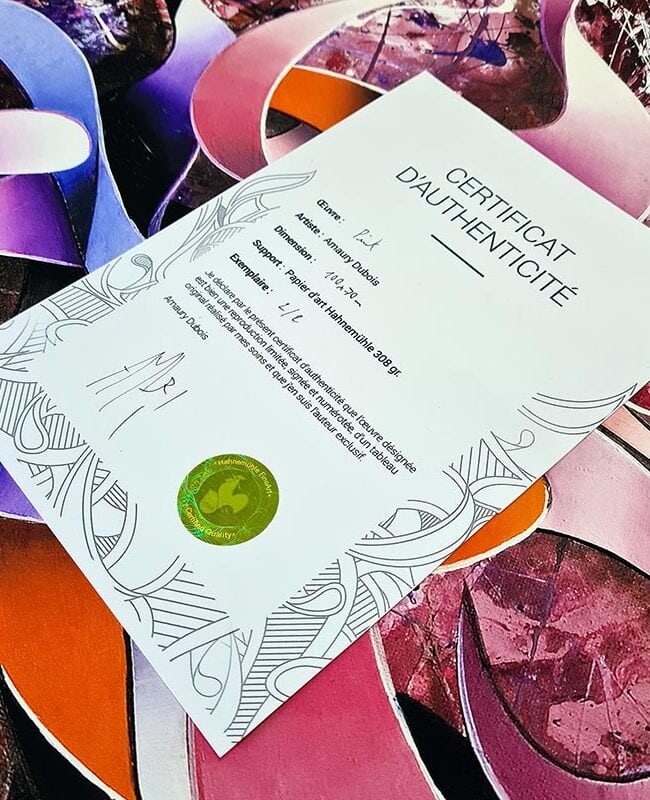 CERTIFICAT
D'AUTHENTICITÉ
Œuvre :
Artiste : Amaury Dubois
Dimension : 100x70
Support : Papier d'art Hahnemühle 308 gr.
Exemplaire :
Je déclare par le présent certificat d'authenticité que l'œuvre désignée
est bien une reproduction limitée, signée et numérotée, d'un tableau
original réalisé par mes soins et que j'en suis l'auteur exclusif.
Amaury Dubois
* Hahnemühle FineArt *
* Certified Quality *